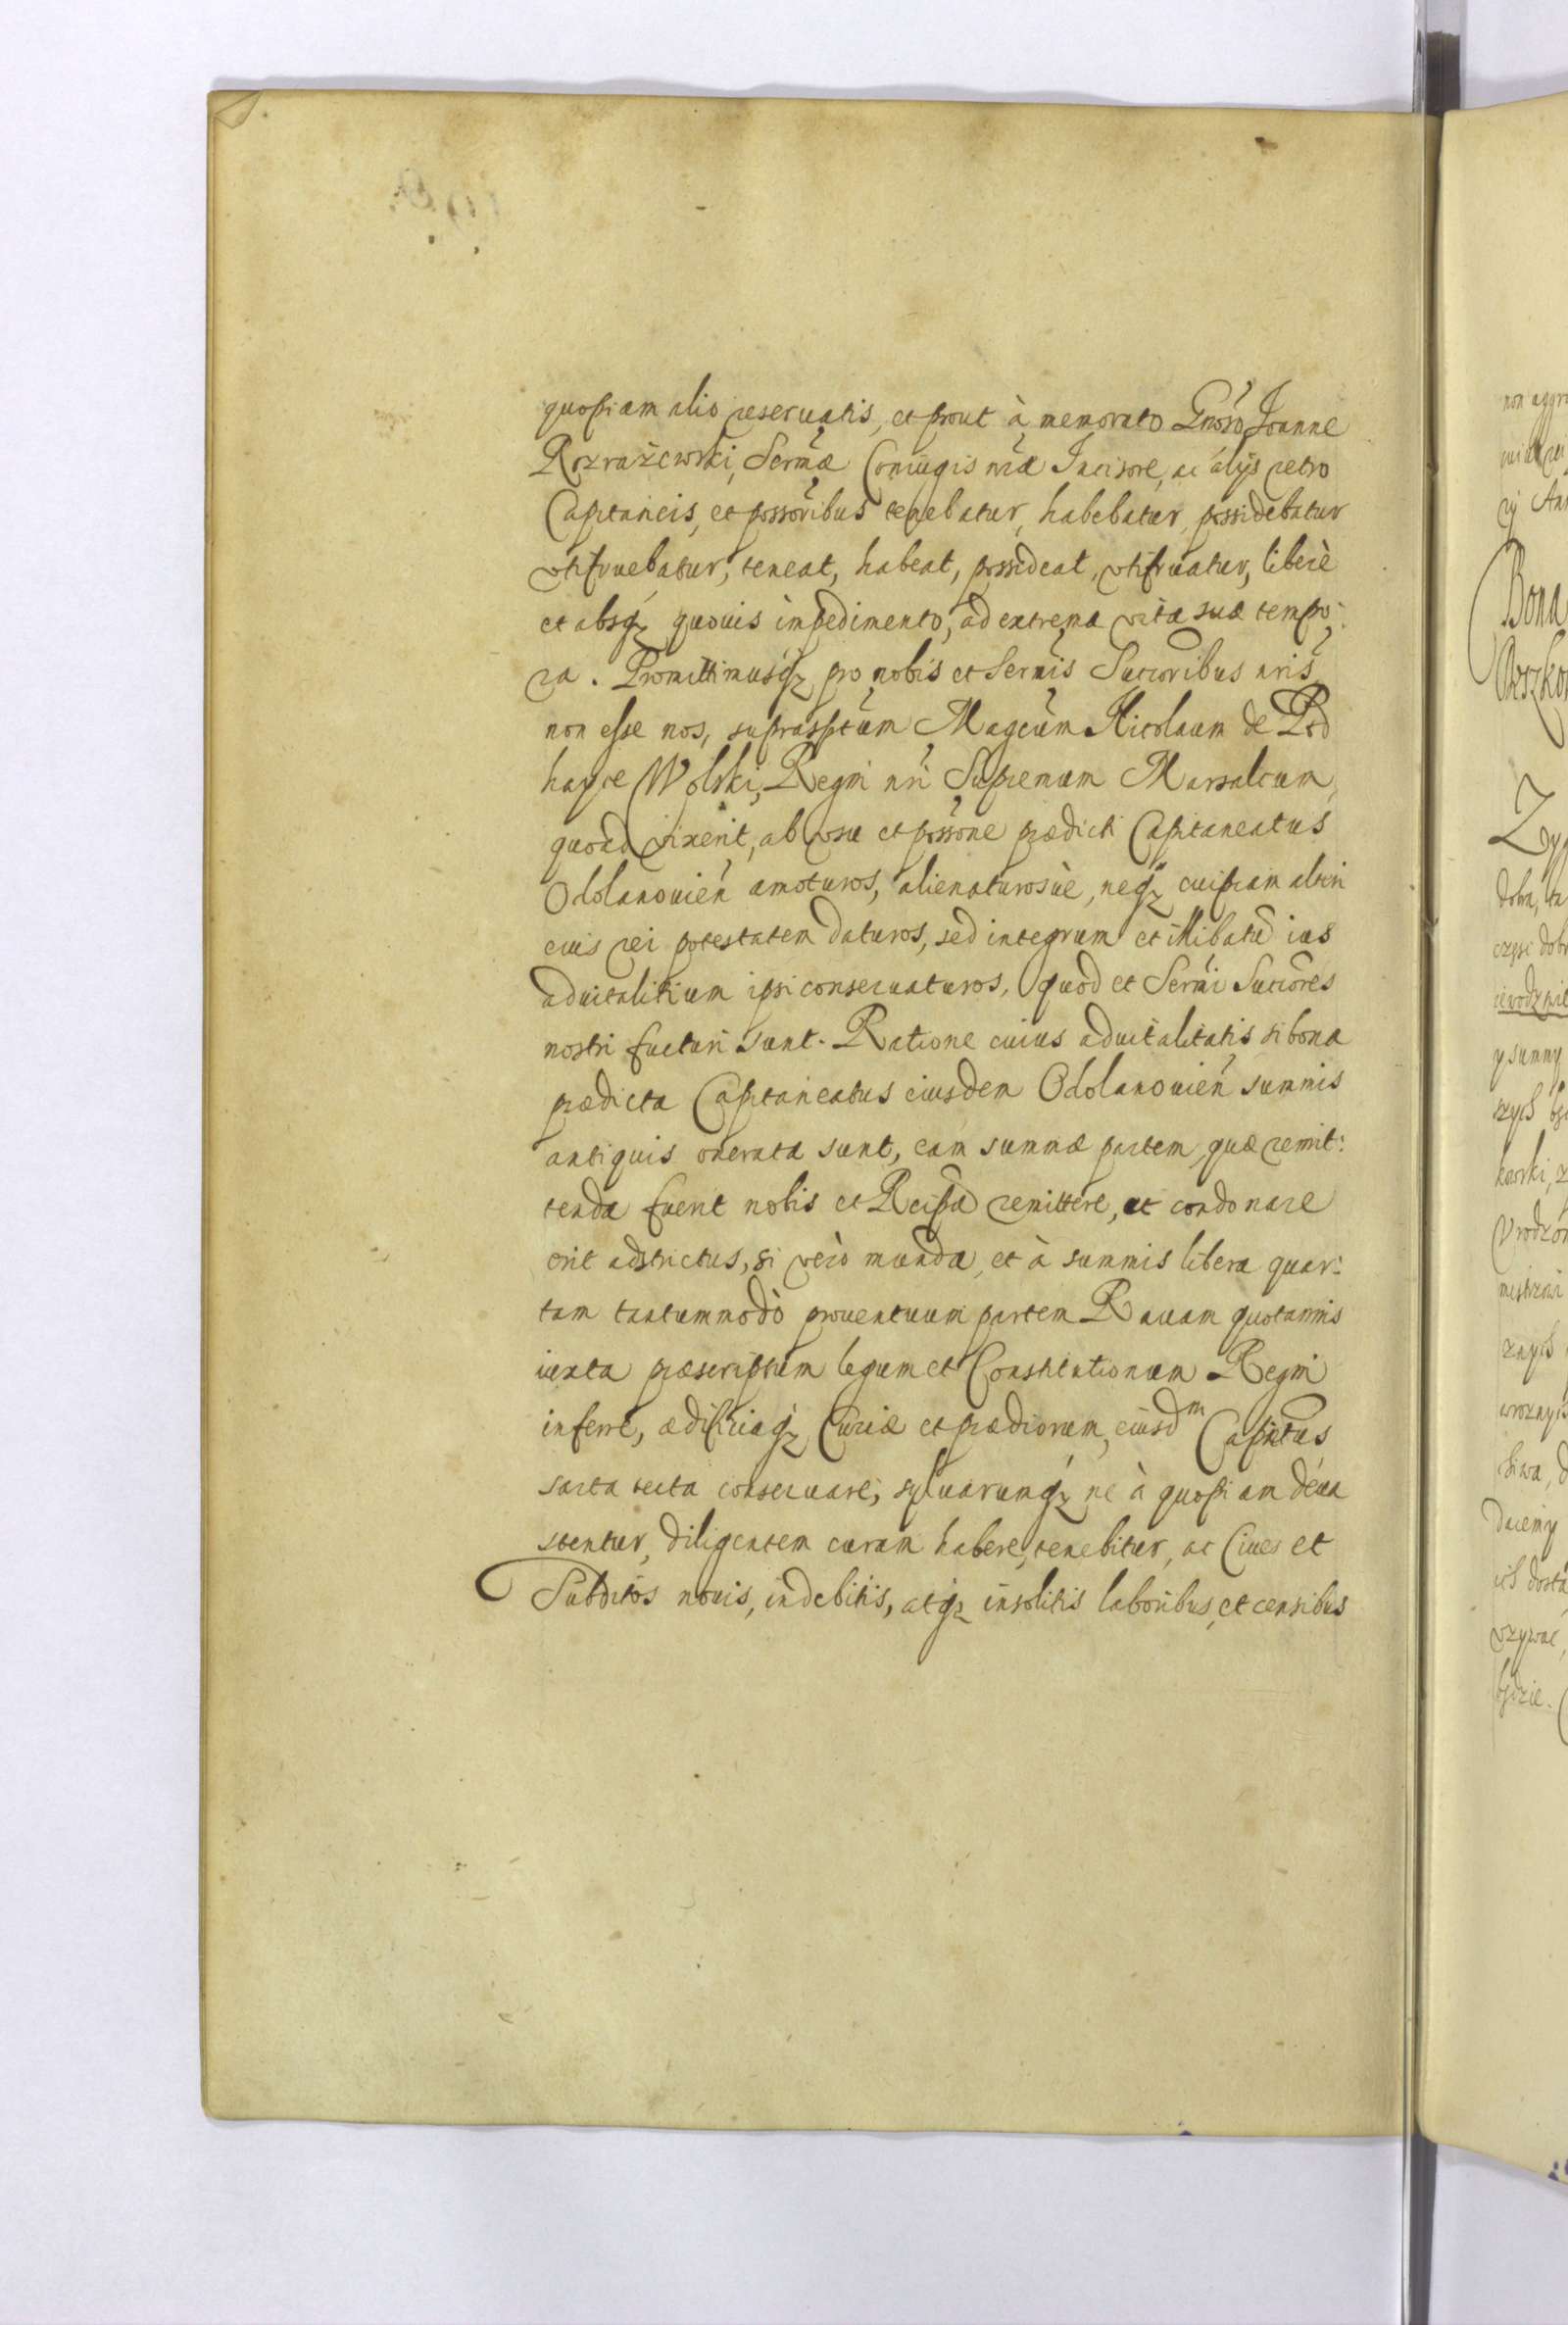 quopiam alio reseruatis, et prout à memorato Gnoso Joanne
Rozrażewski, Sermæ Coniugis nræ Incisore, ac alijs retro
Capitaneis, et possoribus tenebatur, habebatur, possidebatur
vtifruebatur, teneat, habeat, possideat, vtifruatur, liberè
et absq; quouis impedimento, ad extrema vitæ suæ tempo:
ra. Promittimusq; pro nobis et Sermis Succoribus nris,
non esse nos, suprasptum Magcum Nicolaum de Pod
hayce Wolski, Regni nri Supremum Marsalcum,
quoad vixerit, ab vsu et possone prædicti Capitaneatus
Odolanouien amoturos, alienaturosuè, neq; cuipiam alteri
eius rei potestatem daturos, sed integrum et illibatū ius
aduitalitium ipsi conseruaturos, quod et Sermi Succores
nostri facturi sunt. Ratione cuius aduitalitatis si bona
prædicta Capitaneatus eiusdem Odolanouien summis
antiquis onerata sunt, eam summæ partem, quæ remit:
tenda fuerit nobis et Reipcæ remittere, et condonare
erit adstrictus, si verò munda, et à summis libera quar:
tam tantummodò prouentuum partem Rauam quotannis
iuxta præscriptum legum et Constitutionum Regni
inferre, ædificiaq; Curiæ et prædiorum, eiusdm Capntus
sarta tecta conseruare, syluarumq; ne à quopiam deua
stentur, diligentem curam habere, tenebitur, ac Ciues et
Subditos nouis, indebitis, atq; insolitis laboribus, et censibus
non aggra
Bona